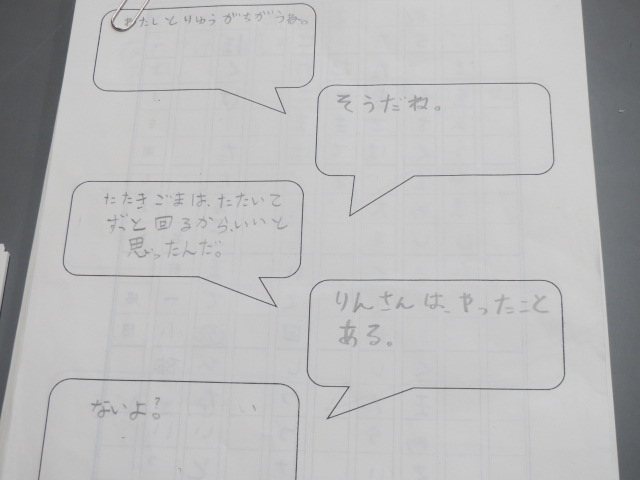 わたしとりゅうがちがうね。
そうだね。
たたきごまは、たたいて
ずっと回るから、いいと
思ったんだ。
りんさんは、やったこと
ある。
ないよ?